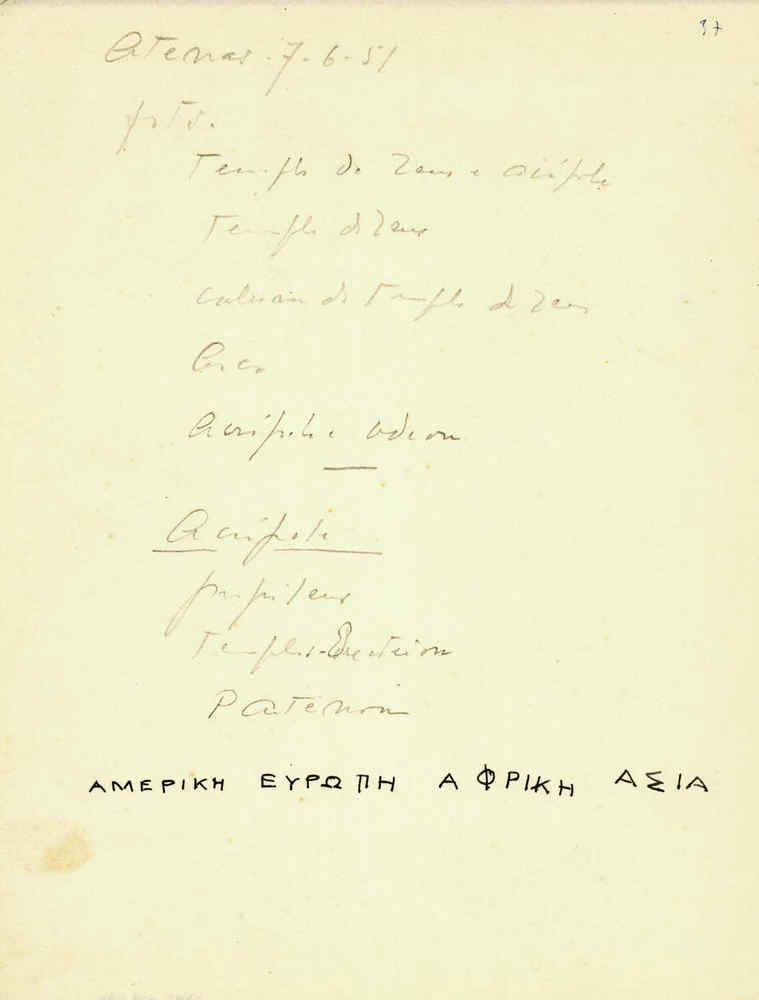 37
Atenas - 7-6-51
foto.
Templo de Zeus e acrópole
Templo de Zeus
coluna do Templo de Zeus
Acrópole e odeon
Acrópole
propileus
Templo - Erecteion
Partenon
ΑΜΕΡΙΚΗ ΕΥΡΩΠΗ ΑΦΡΙΚΗ ΑΣΙΑ